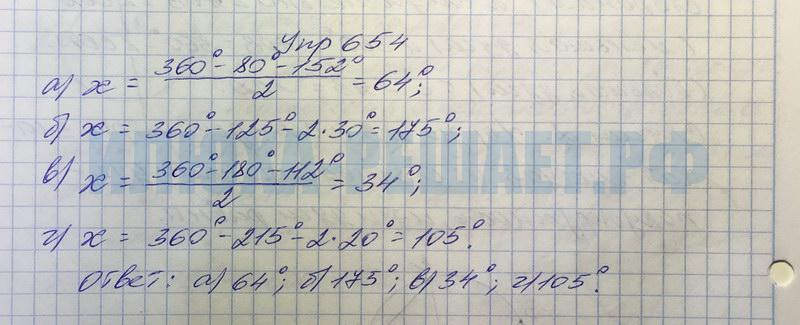 Упр 654
а) x = (360° - 80° - 152°)/2 = 64°;
б) x = 360° - 125° - 2·30° = 175°;
в) x = (360° - 180° - 112°)/2 = 34°;
г) x = 360° - 215° - 2·20° = 105°.
Ответ: а) 64°; б) 175°; в) 34°; г) 105°.